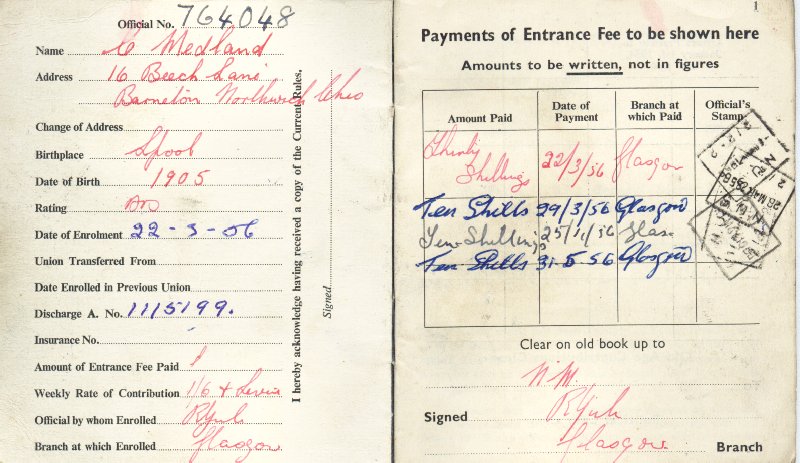 Official No. 764048
Name C Medland
Address 16 Beech Lane
Barnton Northwich Ches
Change of Address
Birthplace Lpool
Date of Birth 1905
Rating
Date of Enrolment 22-3-56
Union Transferred From
Date Enrolled in Previous Union
Discharge A. No. 115199.
Insurance No.
Amount of Entrance Fee Paid
Weekly Rate of Contribution 1/6 + Levie
Official by whom Enrolled
Branch at which Enrolled Glasgow
I hereby acknowledge having received a copy of the Current Rules.
Signed
1
Payments of Entrance Fee to be shown here
Amounts to be written, not in figures
Amount Paid Date of Payment Branch at which Paid Official's Stamp
Thirty Shillings 22/3/56 Glasgow
Ten Shills 29/3/56 Glasgow
Ten Shillings 25/11/56 Glas
Ten Shills 31-5 56 Glasgow
Clear on old book up to
N.M.
Signed
Glasgow Branch